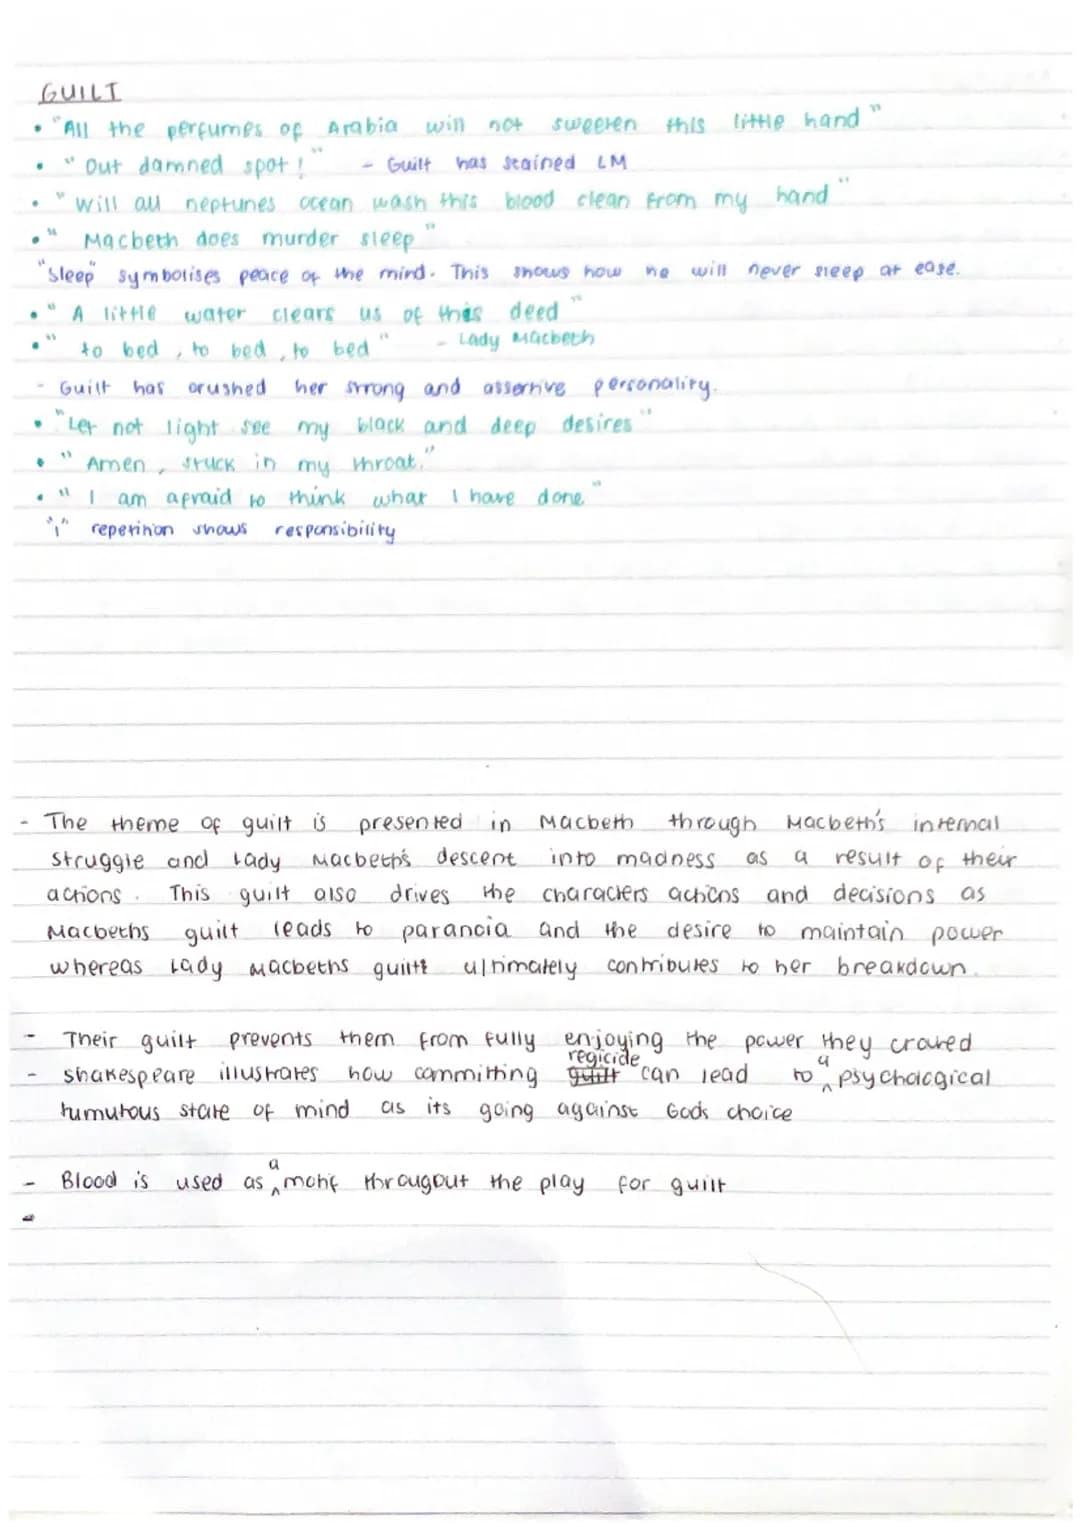 GUILT
• "All the perfumes of Arabia will not sweeten this little hand"
• "Out damned spot!" - Guilt has stained LM
• "Will all neptunes ocean wash this blood clean from my hand"
• "Macbeth does murder sleep"
"Sleep" symbolises peace of the mind. This shows how he will never sleep at ease.
• "A little water clears us of this deed"
• "to bed, to bed, to bed" - Lady Macbeth
- Guilt has crushed her strong and assertive personality.
• "Let not light see my black and deep desires"
• "Amen, stuck in my throat."
• "I am afraid to think what I have done"
"I" repetition shows responsibility
- The theme of guilt is presented in Macbeth through Macbeth's internal
struggle and Lady Macbeth's descent into madness as a result of their
actions. This guilt also drives the characters actions and decisions as
Macbeths guilt leads to paranoia and the desire to maintain power
whereas Lady Macbeths guilt ultimately contributes to her breakdown.
- Their guilt prevents them from fully enjoying the power they craved
- Shakespeare illustrates how committing regicide can lead to a psychological
tumutous state of mind as its going against Gods choice
- Blood is used as a motif througout the play for guilt